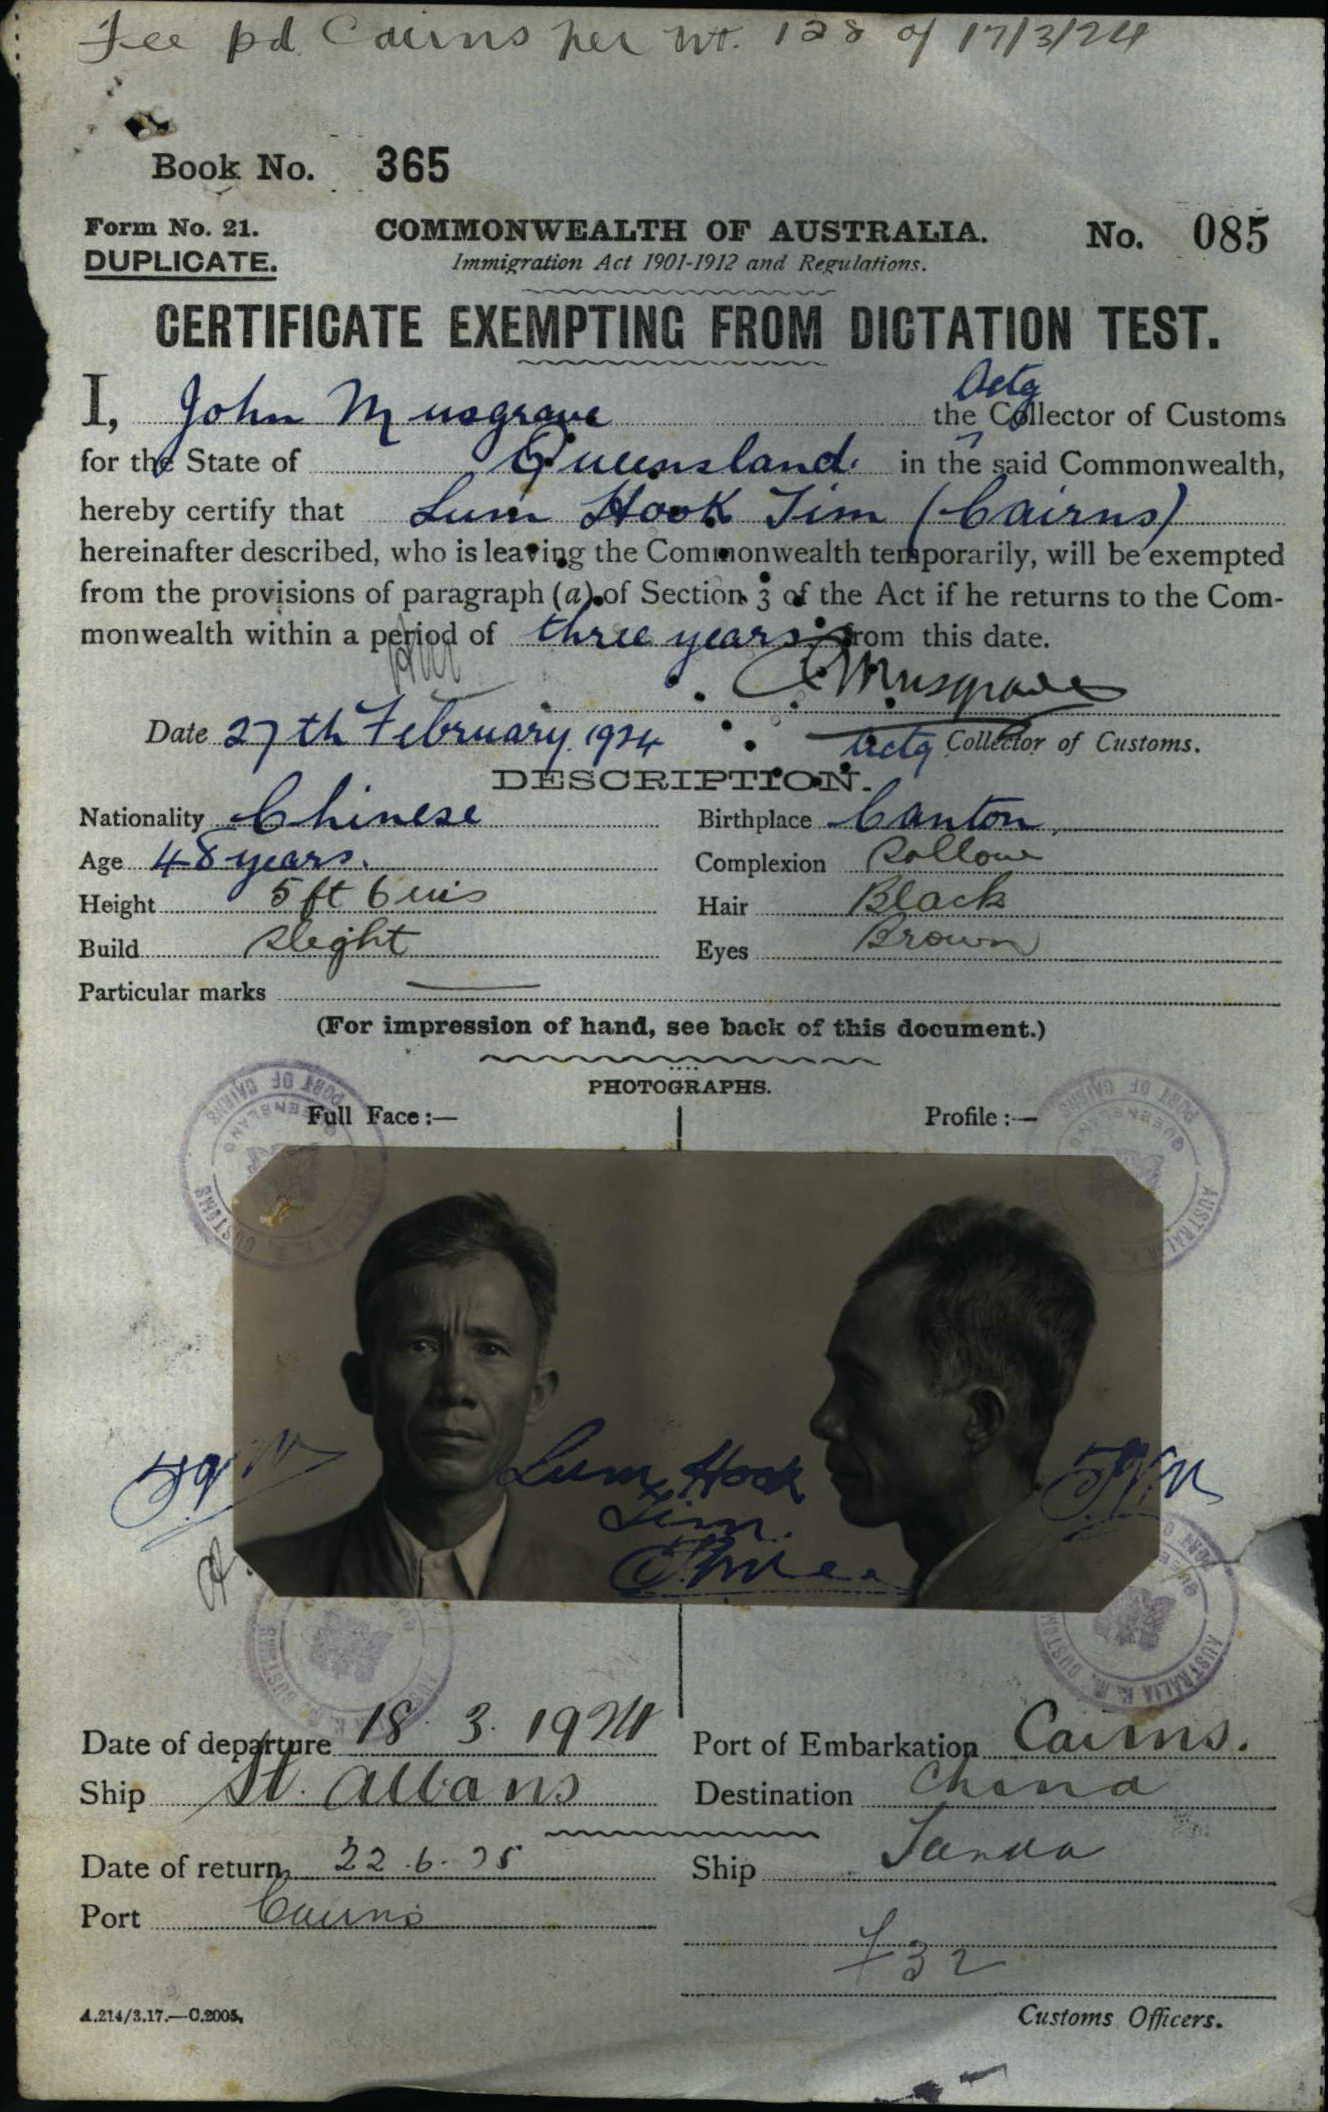 Fee pd Cairns per Wt. 128 of 17/3/24
Book No. 365
Form No. 21. COMMONWEALTH OF AUSTRALIA. No. 085
DUPLICATE. Immigration Act 1901-1912 and Regulations.
CERTIFICATE EXEMPTING FROM DICTATION TEST.
Actg
I, John Musgrave the Collector of Customs
for the State of Queensland. in the said Commonwealth,
hereby certify that Lum Hook Tim (Cairns)
hereinafter described, who is leaving the Commonwealth temporarily, will be exempted
from the provisions of paragraph (a) of Section 3 of the Act if he returns to the Com-
monwealth within a period of three years from this date.
Musgrave
Date 27th February 1924 Actg Collector of Customs.
DESCRIPTION.
Nationality Chinese Birthplace Canton
Age 48 years. Complexion Sallow
Height 5 ft 6 ins Hair Black
Build Slight Eyes Brown
Particular marks —
(For impression of hand, see back of this document.)
PHOTOGRAPHS.
Full Face:— Profile:—
PORT OF CAIRNS QUEENSLAND CUSTOMS
PORT OF CAIRNS QUEENSLAND AUSTRALIA
Lum Hook
Tim.
CUSTOMS
AUSTRALIA
Date of departure 18. 3. 1924 Port of Embarkation Cairns.
Ship St. Albans Destination China
Date of return 22.6.25 Ship Tanda
Port Cairns
732
A.214/3.17.—C.2005. Customs Officers.